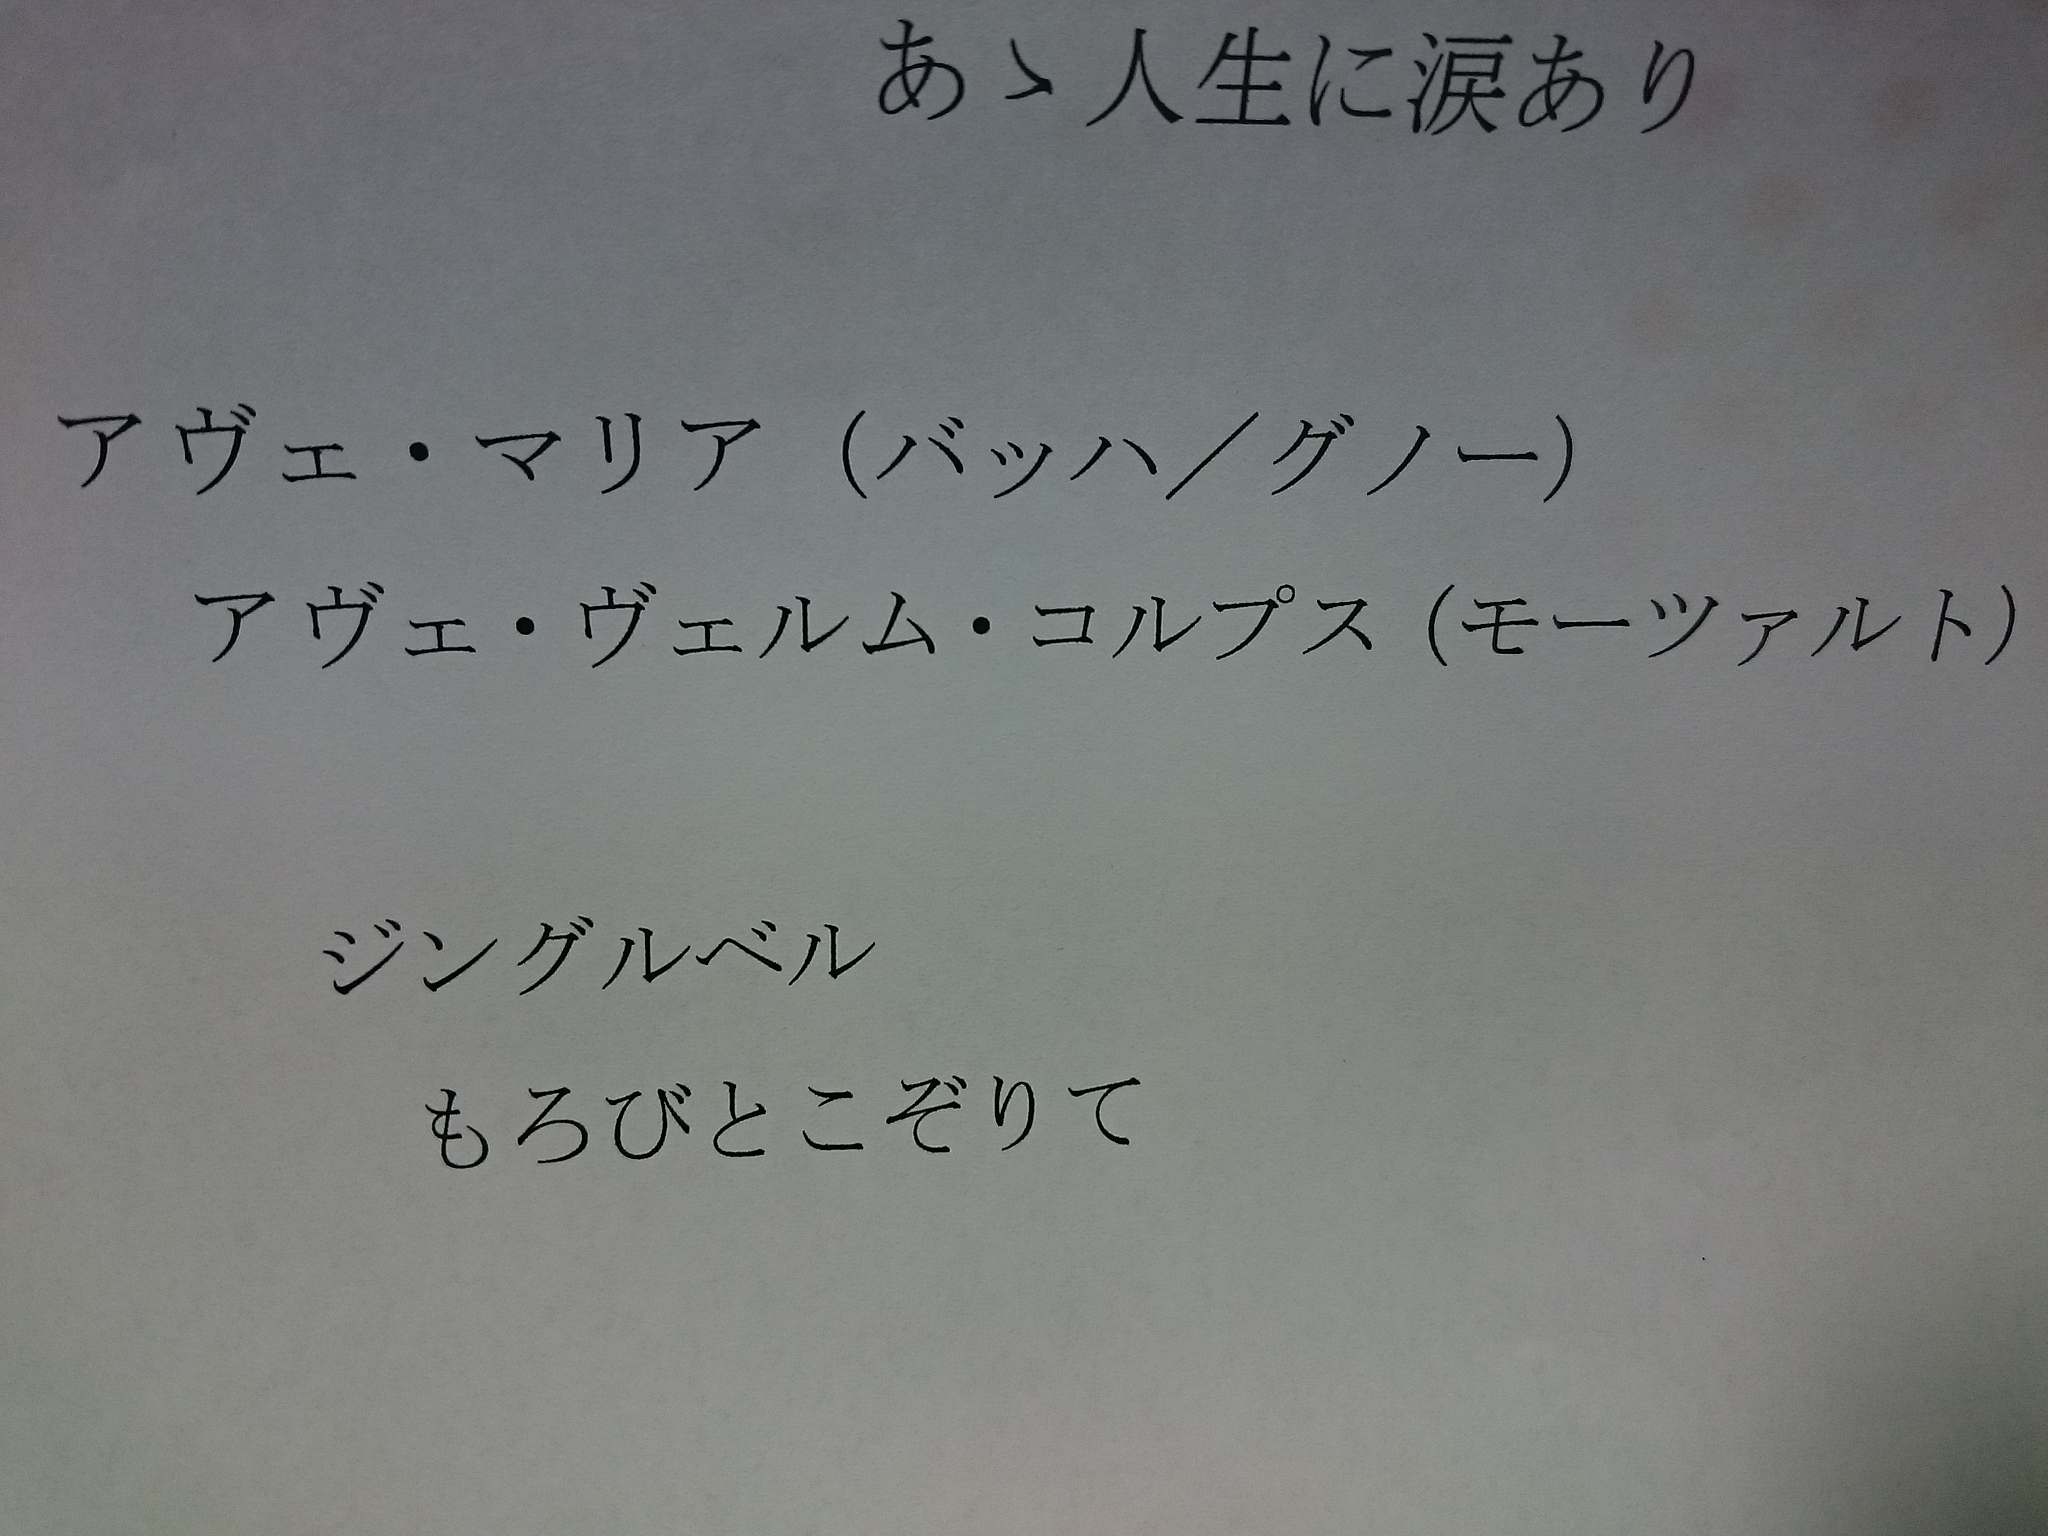 あゝ人生に涙あり
アヴェ・マリア（バッハ／グノー）
アヴェ・ヴェルム・コルプス（モーツァルト）
ジングルベル
もろびとこぞりて